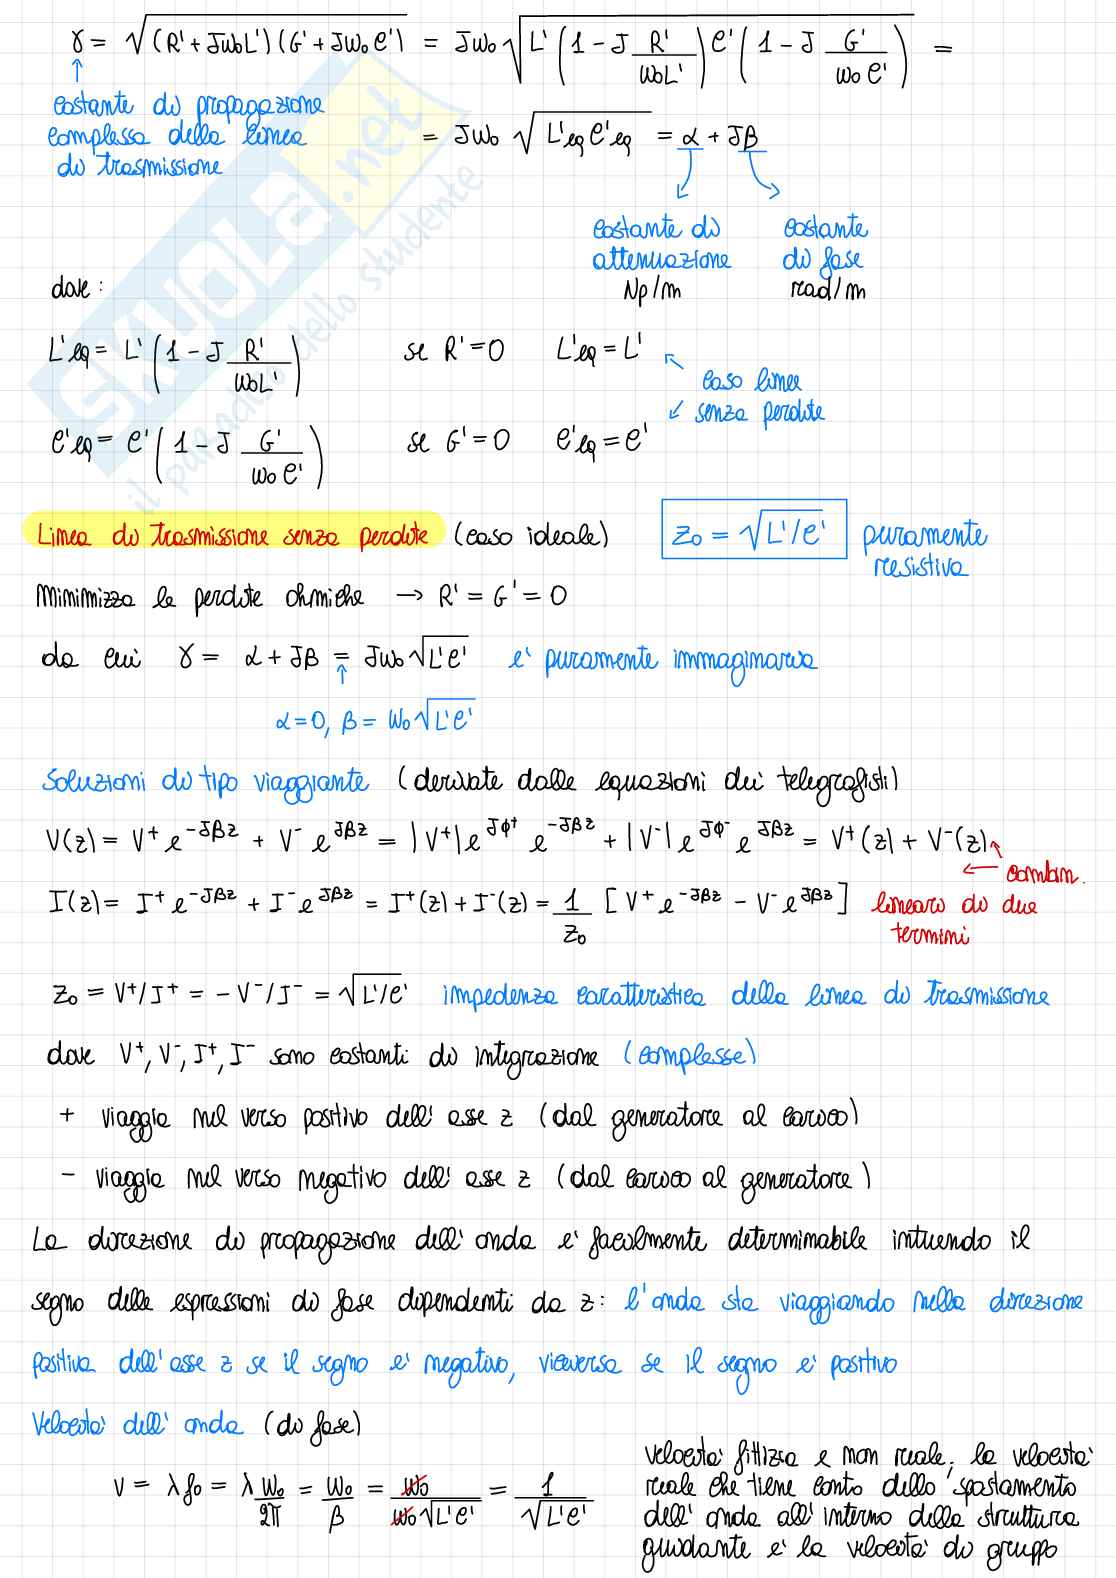 γ = √((R'+Jω₀L')(G'+Jω₀C')) = Jω₀ √(L'(1-J R'/ω₀L') C'(1-J G'/ω₀C')) =
costante di propagazione
complessa della linea
di trasmissione
= Jω₀ √(L'eq C'eq) = α + Jβ
costante di attenuazione Np/m
costante di fase rad/m
dove:
L'eq = L'(1-J R'/ω₀L') se R'=0 L'eq = L'
caso linea
senza perdite
C'eq = C'(1-J G'/ω₀C') se G'=0 C'eq = C'
Linea di trasmissione senza perdite (caso ideale) Z₀ = √(L'/C') puramente
resistiva
Minimizza le perdite ohmiche → R' = G' = 0
da cui γ = α + Jβ = Jω₀√(L'C') e' puramente immaginaria
α=0, β = ω₀√(L'C')
Soluzioni di tipo viaggiante (derivate dalle equazioni dei telegrafisti)
V(z) = V⁺e^(-Jβz) + V⁻e^(Jβz) = |V⁺|e^(Jφ⁺) e^(-Jβz) + |V⁻|e^(Jφ⁻) e^(Jβz) = V⁺(z) + V⁻(z)
combin.
I(z) = I⁺e^(-Jβz) + I⁻e^(Jβz) = I⁺(z) + I⁻(z) = 1/Z₀ [V⁺e^(-Jβz) - V⁻e^(Jβz)] lineare di due
termini
Z₀ = V⁺/I⁺ = -V⁻/I⁻ = √(L'/C') impedenza caratteristica della linea di trasmissione
dove V⁺, V⁻, I⁺, I⁻ sono costanti di integrazione (complesse)
+ viaggia nel verso positivo dell'asse z (dal generatore al carico)
- viaggia nel verso negativo dell'asse z (dal carico al generatore)
La direzione di propagazione dell'onda e' facilmente determinabile intuendo il
segno delle espressioni di fase dipendenti da z: l'onda sta viaggiando nella direzione
positiva dell'asse z se il segno e' negativo, viceversa se il segno e' positivo
Velocita' dell'onda (di fase)
v = λf₀ = λ ω₀/2π = ω₀/β = ω₀/(ω₀√(L'C')) = 1/√(L'C')
velocita' fittizia e non reale, la velocita'
reale che tiene conto dello spostamento
dell'onda all'interno della struttura
guidante e' la velocita' di gruppo
SKUOLA.net
il paradiso dello studente